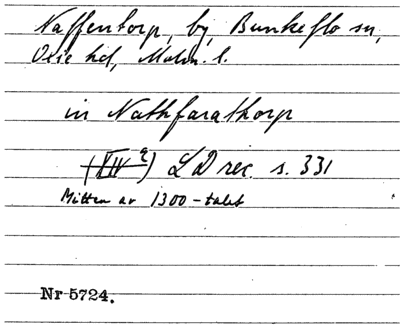 Naffentorp, by, Bunkeflo sn,
Oxie hd, Malm. l.
in Nathfarathorp
(XIV 2) LD rec. s. 331
Mitten av 1300-talet
Nr 5724.